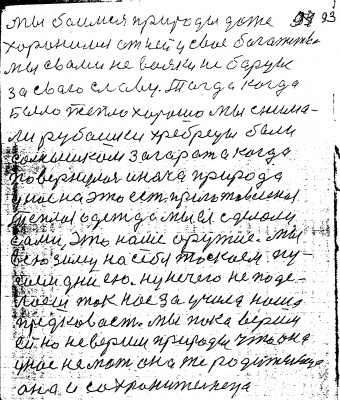 мы боимся природы даже 93
хоронимся от ней у свае багажства
мы свами не вояки не барцы
за сваю славу. Тагда когда
было тепло хорошо мы снима-
ли рубашки хребреты были
солнышком загарата когда
повернулся иначе природа
у нас на это ест. пригатовленая
теплая одежда. мы ея сделали
сами, это наше оружие. мы
всю зиму на себя таскаем, ку-
таем ею. ну нечего не поде-
лаеш так нас за учила наша
предковаст. мы пока верим
ей но не верим природы что она
у нас не мот она же родительница
она и сохранительница